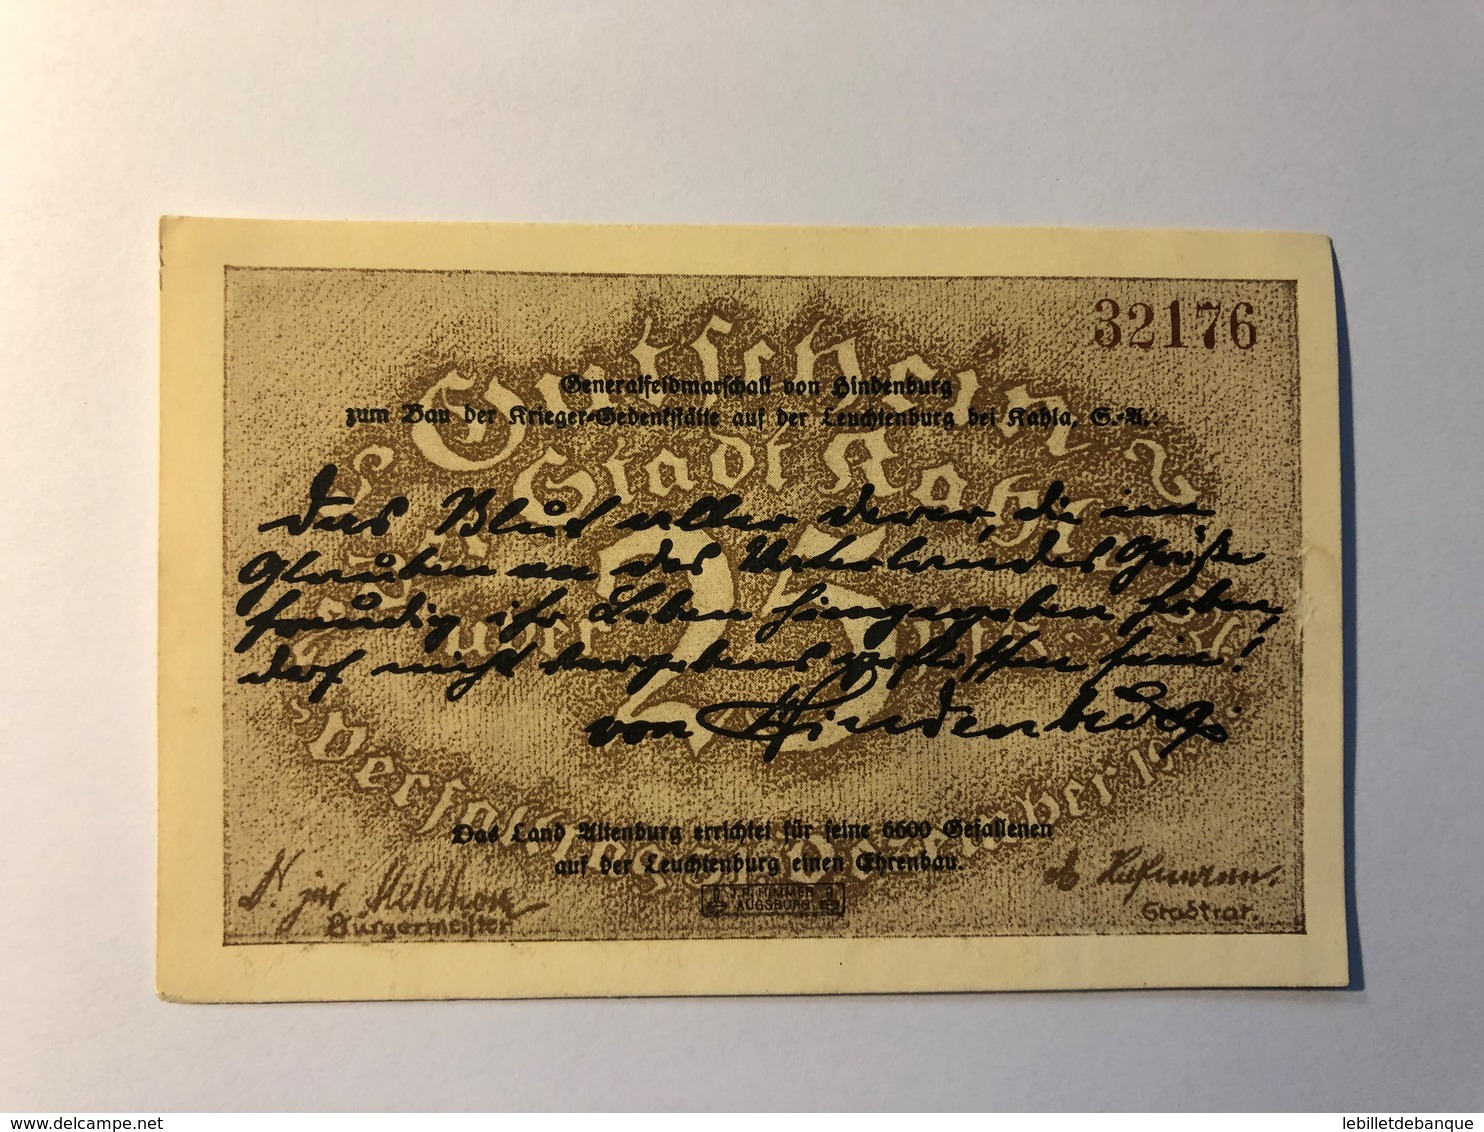 32176
Gutschein
Generalfeldmarschall von Hindenburg
zum Bau der Krieger-Gedenkstätte auf der Leuchtenburg bei Kahla, S.-A.:
Stadt Kahla
Das Blut aller derer, die im
Glauben an des Vaterlandes Größe
freudig ihr Leben hingegeben haben,
darf nicht vergebens geflossen sein!
über 25
von Hindenburg
Das Land Altenburg errichtet für seine 6600 Gefallenen
auf der Leuchtenburg einen Ehrenbau.
Bürgermeister
J.P. HIMMER
AUGSBURG
Stadtrat.
www.delcampe.net
lebilletdebanque